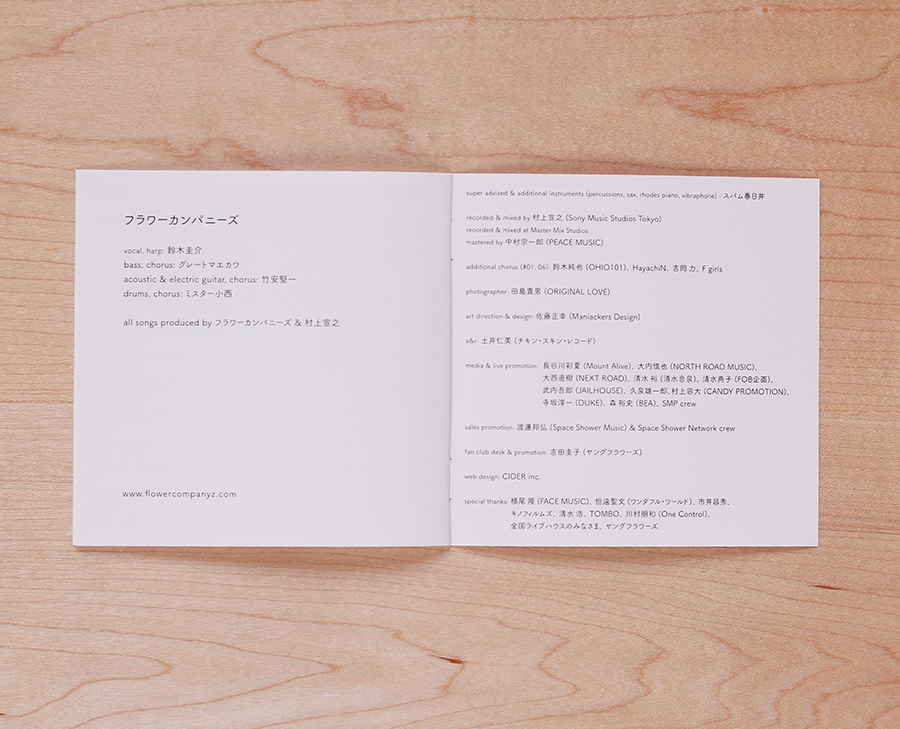 フラワーカンパニーズ
vocal, harp: 鈴木圭介
bass, chorus: グレートマエカワ
acoustic & electric guitar, chorus: 竹安堅一
drums, chorus: ミスター小西
all songs produced by フラワーカンパニーズ & 村上宣之
www.flowercompanyz.com
super advised & additional instruments (percussions, sax, rhodes piano, vibraphone) : スパム春日井
recorded & mixed by 村上宣之 (Sony Music Studios Tokyo)
recorded & mixed at Master Mix Studios
mastered by 中村宗一郎 (PEACE MUSIC)
additional chorus (#01, 06): 鈴木純也 (OHIO101)、HayachiN、吉岡 力、F girls
photographer: 田島貴男 (ORIGINAL LOVE)
art direction & design: 佐藤正幸 (Maniackers Design)
a&r: 土井仁美 (チキン・スキン・レコード)
media & live promotion: 長谷川彩夏 (Mount Alive)、大内慎也 (NORTH ROAD MUSIC)、
大西直樹 (NEXT ROAD)、清水 裕 (清水音泉)、清水典子 (FOB企画)、
武内吾郎 (JAILHOUSE)、久泉雄一郎、村上容大 (CANDY PROMOTION)、
寺坂淳一 (DUKE)、森 裕史 (BEA)、SMP crew
sales promotion: 渡邊邦弘 (Space Shower Music) & Space Shower Network crew
fan club desk & promotion: 吉田圭子 (ヤングフラワーズ)
web design: CIDER inc.
special thanks: 横尾 隆 (FACE MUSIC)、恒遠聖文 (ワンダフル・ワールド)、市井昌秀、
キノフィルムズ、清水 浩、TOMBO、川村朋和 (One Control)、
全国ライブハウスのみなさま、ヤングフラワーズ